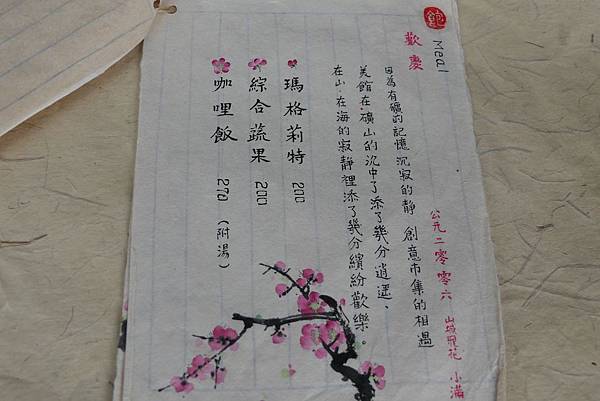 飽
Meal
歡慶
因為有礦的記憶沉寂的靜 創意市集的相遇
美館在礦山的沉中了添了幾分逍遥、
在山、在海的寂靜裡添了幾分繽紛歡樂。
公元二零零六 山城 花 小滿
瑪格莉特 200
綜合蔬果 200
咖哩飯 270 (附湯)